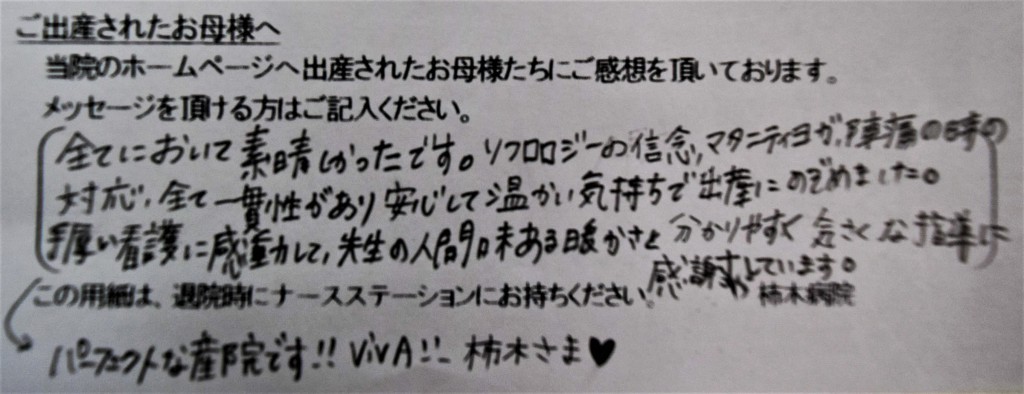 ご出産されたお母様へ
当院のホームページへ出産されたお母様たちにご感想を頂いております。
メッセージを頂ける方はご記入ください。
全てにおいて素晴しかったです。ソフロロジーの信念、マタニティヨガ、陣痛の時の
対応、全て一貫性があり安心して温かい気持ちで出産にのぞめました。
手厚い看護に感動して、先生の人間味ある暖かさと分かりやすく気さくな指導に
感謝しています。
この用紙は、退院時にナースステーションにお持ちください。 柿木病院
パーフェクトな産院です!! VivA!! 柿木さま♥